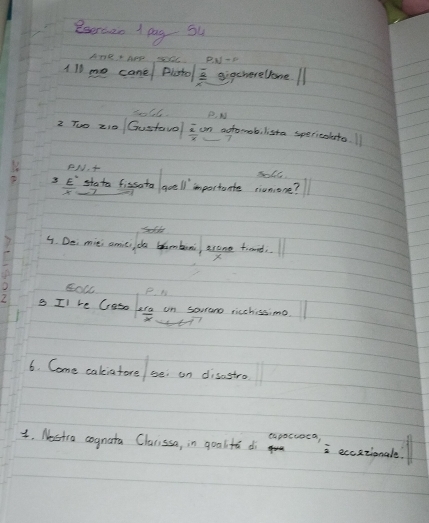 Esercizio 1 pag 54
Attr + App Sogg. P.N - P
1. Il mio cane Pluto è giocherellone.
Sogg. P.N
2 Tuo zio Gustavo è un automobilista spericolato.
P.N. + Sogg.
3 E' stata fissata quell'importante riunione?
Sogg
4. Dei miei amici, da bambini, erano timidi.
Sogg P.N
5 Il re Creso era un sovrano ricchissimo
6. Come calciatore sei un disastro.
7. Nostra cognata Clarissa, in qualità di capocuoca, è eccezionale.